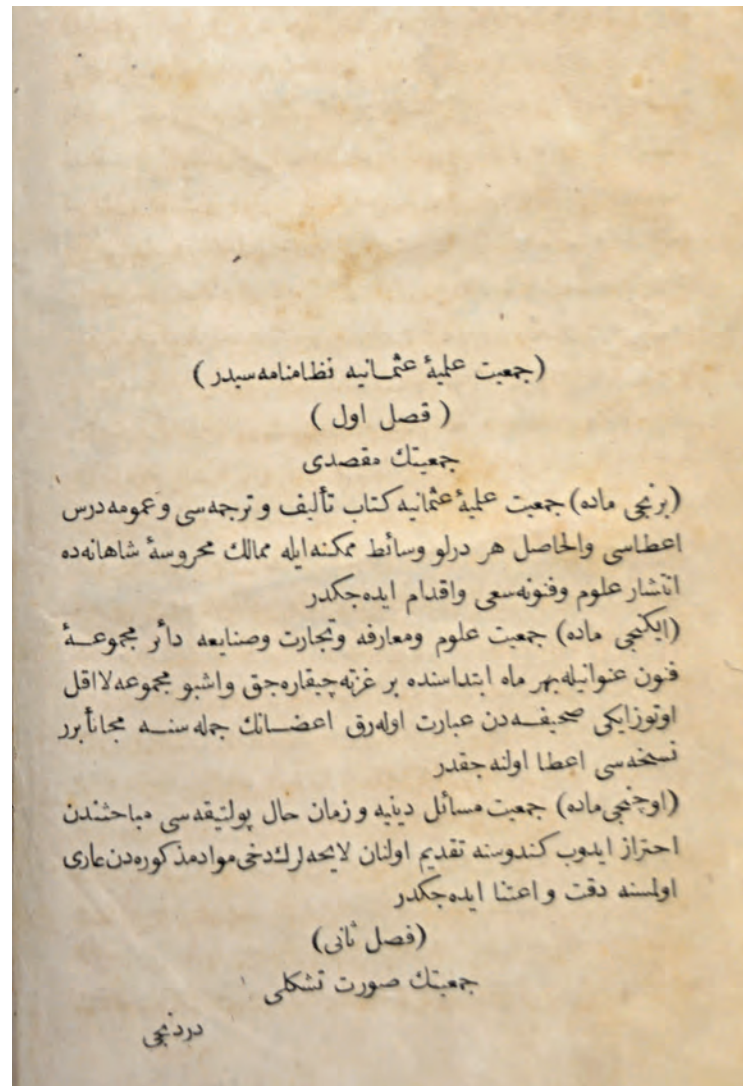 (جمعیت علمیۀ عثمانیه نظامنامه‌سیدر)
(فصل اول)
جمعیتك مقصدی
(برنجی ماده) جمعیت علمیۀ عثمانیه كتاب تألیف و ترجمه‌سی و عمومه درس
اعطاسی والحاصل هر درلو وسائط ممكنه ایله ممالك محروسۀ شاهانه‌ده
انتشار علوم وفنونه سعی واقدام ایده‌جكدر
(ایكنجی ماده) جمعیت علوم ومعارفه وتجارت وصنایعه دائر مجموعۀ
فنون عنوانیله بهر ماه ابتداسنده بر غزته چیقاره‌جق واشبو مجموعه لااقل
اوتوزایكی صحیفه‌دن عبارت اوله‌رق اعضانك جمله‌سنه مجاناً برر
نسخه‌سی اعطا اولنه‌جقدر
(اوچنجی ماده) جمعیت مسائل دینیه و زمان حال پولتیقه‌سی مباحثندن
احتراز ایدوب كندوسنه تقدیم اولنان لایحه‌لرك دخی مواد مذكوره‌دن عاری
اولمسنه دقت و اعتنا ایده‌جكدر
(فصل ثانی)
جمعیتك صورت تشكلی
دردنجی